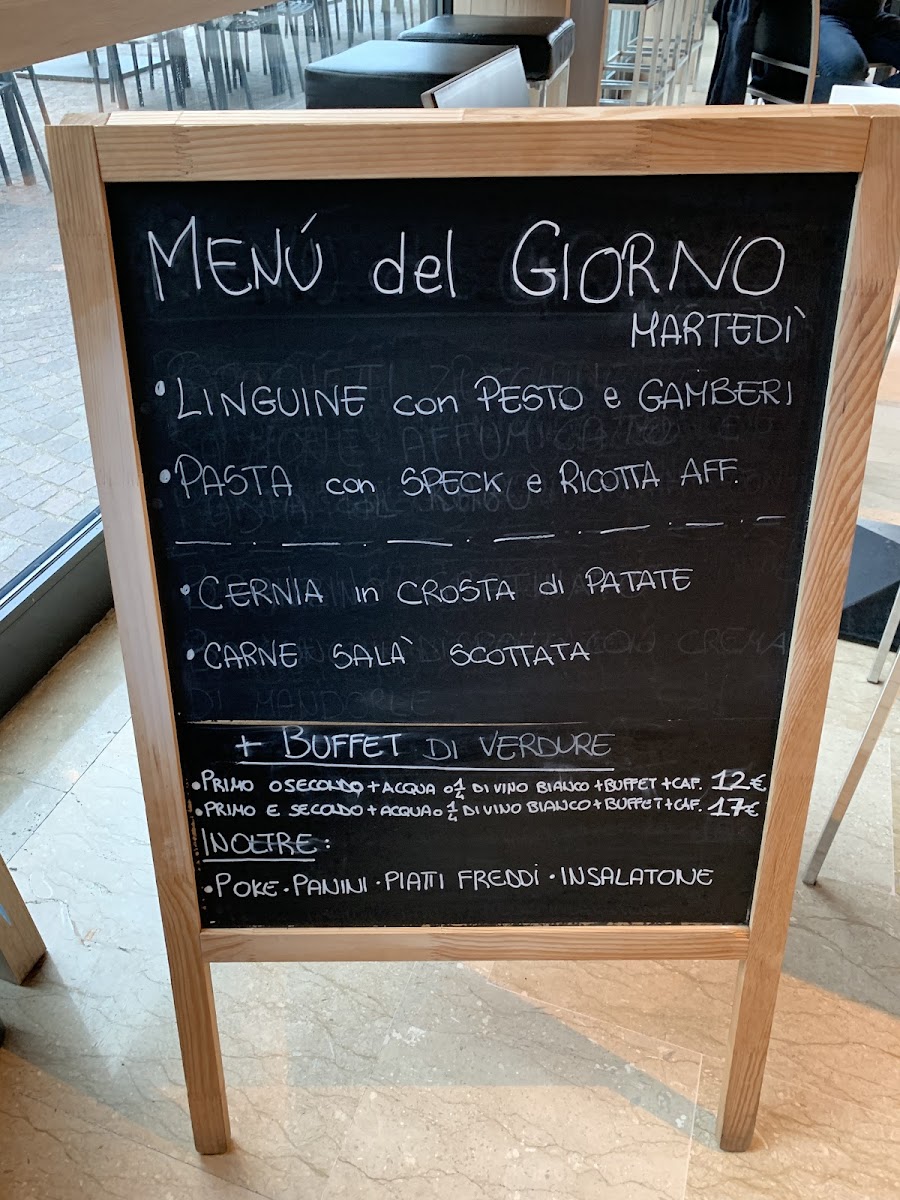 MENÚ del GIORNO
MARTEDÌ
• LINGUINE con PESTO e GAMBERI
• PASTA con SPECK e RICOTTA AFF.
• CERNIA in CROSTA di PATATE
• CARNE SALÀ SCOTTATA
+ BUFFET DI VERDURE
• PRIMO O SECONDO + ACQUA o 1/4 DI VINO BIANCO + BUFFET + CAF. 12€
• PRIMO E SECONDO + ACQUA o 1/4 DI VINO BIANCO + BUFFET + CAF. 17€
INOLTRE:
• POKE • PANINI • PIATTI FREDDI • INSALATONE